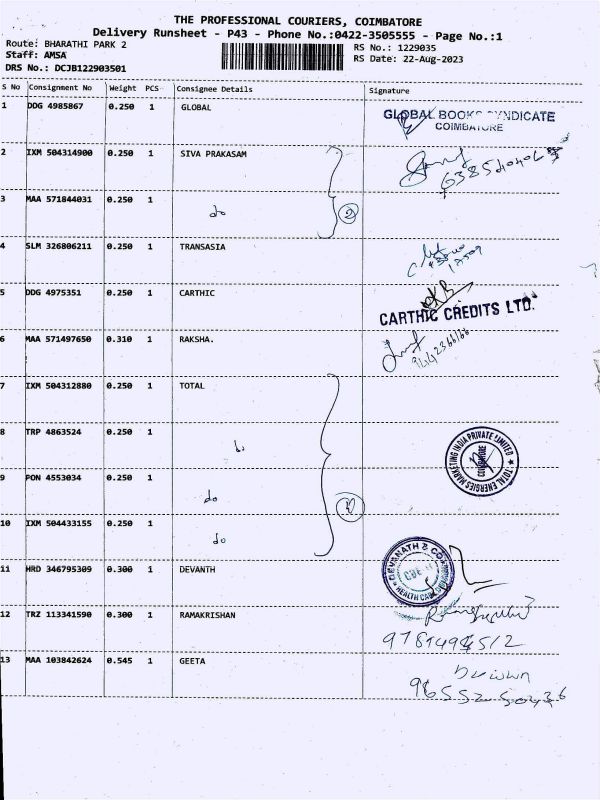 THE PROFESSIONAL COURIERS, COIMBATORE
Delivery Runsheet - P43 - Phone No.:0422-3505555 - Page No.:1
Route: BHARATHI PARK 2 RS No.: 1229035
Staff: AMSA RS Date: 22-Aug-2023
DRS No.: DCJB122903501
S No Consignment No Weight PCS Consignee Details Signature
1 DDG 4985867 0.250 1 GLOBAL
GLOBAL BOOKS SYNDICATE
COIMBATORE
2 IXM 504314900 0.250 1 SIVA PRAKASAM
3 MAA 571844031 0.250 1 do 2
4 SLM 326806211 0.250 1 TRANSASIA
5 DDG 4975351 0.250 1 CARTHIC
CARTHIC CREDITS LTD.
6 MAA 571497650 0.310 1 RAKSHA.
9442366166
7 IXM 504312880 0.250 1 TOTAL
8 TRP 4863524 0.250 1 do
TOTAL ENERGIES MARKETING INDIA PRIVATE LIMITED
COIMBATORE
9 PON 4553034 0.250 1 do
10 IXM 504433155 0.250 1 do
11 HRD 346795309 0.300 1 DEVANTH
DEVANATH & CO
HEALTH CARE
12 TRZ 113341590 0.300 1 RAMAKRISHAN
13 MAA 103842624 0.545 1 GEETA